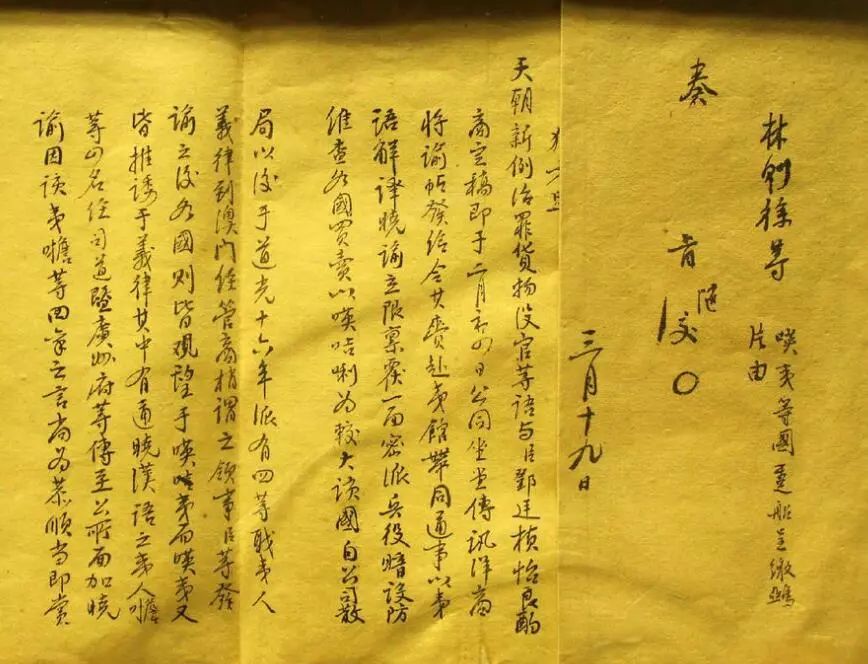 奏
林則徐等
㗎夷等國躉船呈繳鴉
片由
隨
旨
三月十九日
天朝新例治罪貨物沒官等語与臣鄧廷楨怡良酌
商定稿即于二月初四日公同坐堂傳訊洋商
將諭帖發給令其賫赴夷館帶同通事以夷
語解譯曉諭立限禀覆一面密派兵役暗設防
維查各國買賣以㗎咭唎為較大該國自公司散
局以後于道光十六年派有四等職夷人
義律到澳門經管商梢謂之領事臣等發
諭之後各國則皆觀望于㗎咭夷而㗎夷又
皆推諉于義律其中有通曉漢語之夷人噡
等四名經司道暨廣州府等傳至公所面加曉
諭因該夷噡等回稟之言尚為恭順當即賞